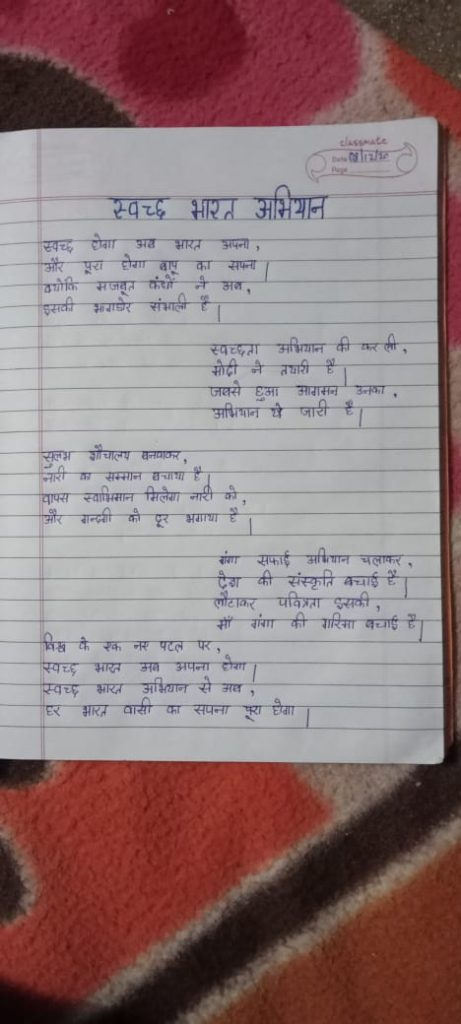 classmate
Date 08/12/20
Page
स्वच्छ भारत अभियान
स्वच्छ होगा अब भारत अपना,
और पूरा होगा बापू का सपना।
क्योकि मजबूत कंधों ने अब,
इसकी भागडोर संभाली है।
स्वच्छता अभियान की कर ली,
मोदी ने तयारी है।
जबसे हुआ आगमन उनका,
अभियान ये जारी है।
सुलभ शौचालय बनवाकर,
नारी का सम्मान बचाया है।
वापस स्वाभिमान मिलेगा नारी को,
और गन्दगी को दूर भगाया है।
गंगा सफाई अभियान चलाकर,
देश की संस्कृति बचाई है।
लौटाकर पवित्रता इसकी,
माँ गंगा की गरिमा बचाई है।
विश्व के एक नए पटल पर,
स्वच्छ भारत अब अपना होगा।
स्वच्छ भारत अभियान से अब,
हर भारत वासी का सपना पूरा होगा।